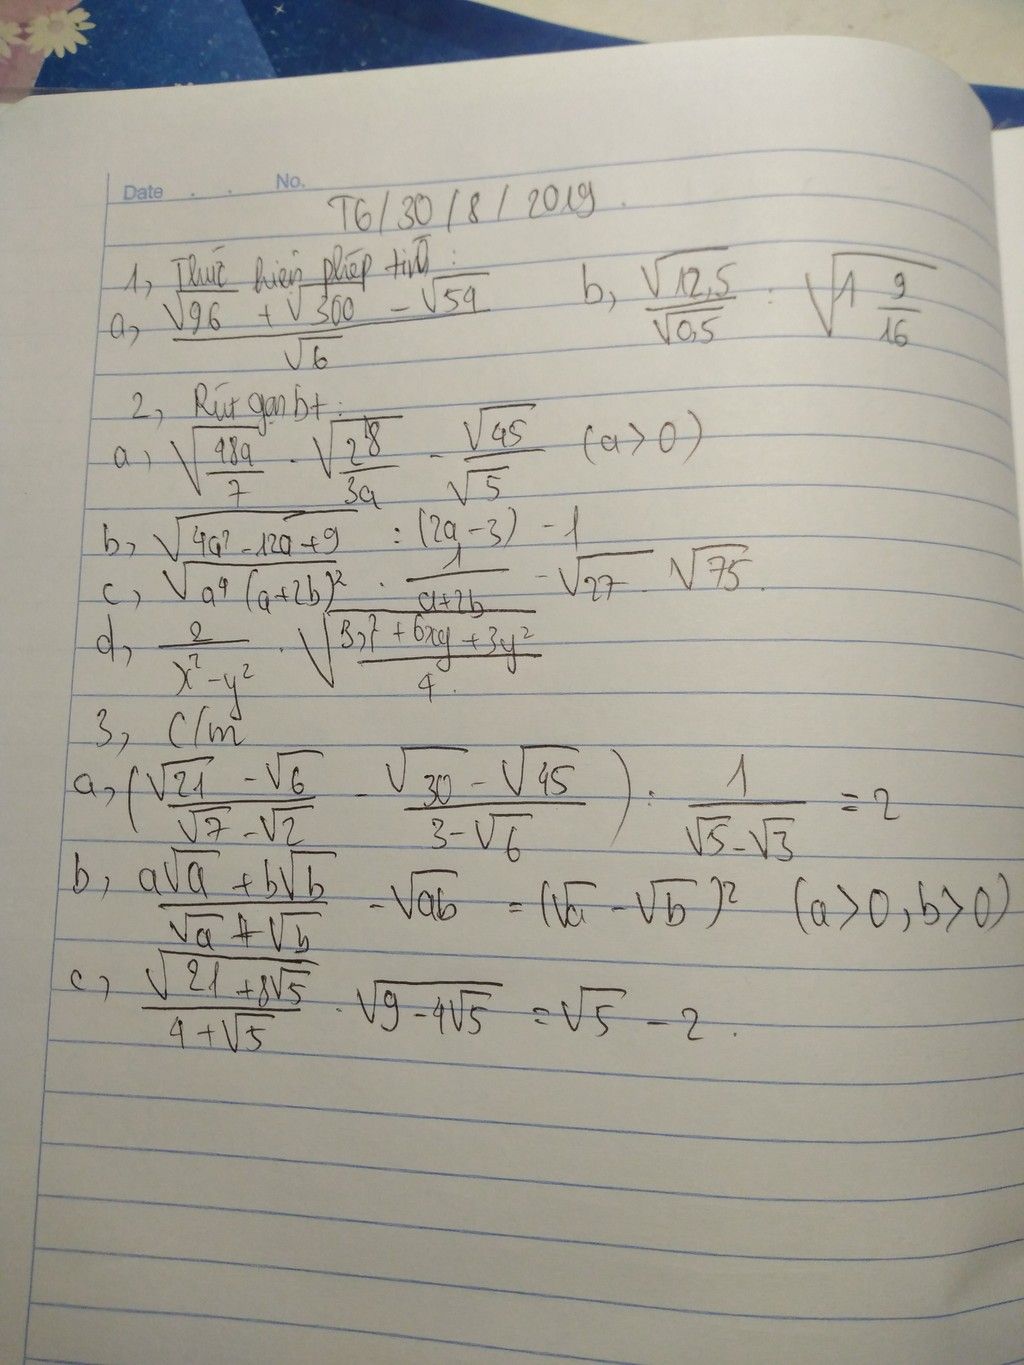 Date . . No.
T6/30/8/2019.
1, Thực hiện phép tính:
a, (√96 + √300 - √54)/√6 b, √12,5/√0,5 : √(1 9/16)
2, Rút gọn bt:
a, √(98a/7) · √(28/3a) - √45/√5 (a>0)
b, √(4a² - 12a + 9) : (2a - 3) - 1
c, √(a⁴(a+2b)²) · 1/(a+2b) - √27 · √75.
d, 2/(x² - y²) · √((3x² + 6xy + 3y²)/4).
3, C/m
a, ((√21 - √6)/(√7 - √2) - (√30 - √45)/(3 - √6)) : 1/(√5 - √3) = 2
b, (a√a + b√b)/(√a + √b) - √ab = (√a - √b)² (a>0, b>0)
c, √(21 + 8√5)/(4 + √5) · √(9 - 4√5) = √5 - 2.